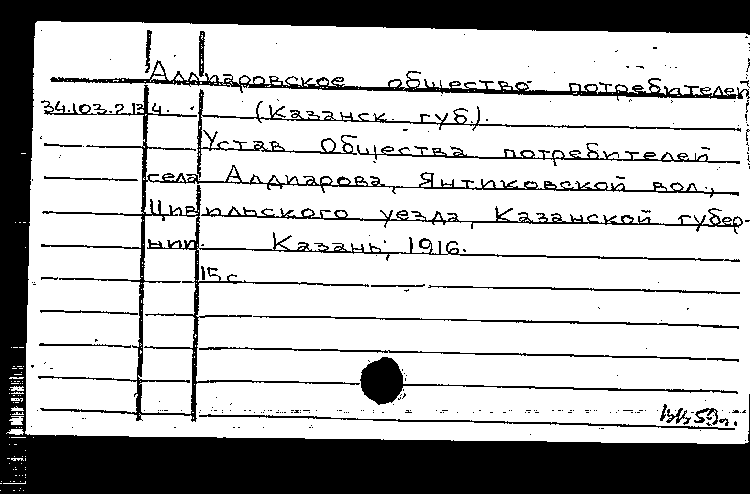 Алдиаровское общество потребителей
34.103.2.134. (Казанск. губ.).
Устав Общества потребителей
села Алдиарова, Янтиковской вол.,
Цивильского уезда, Казанской губер-
нии. Казань, 1916.
15 с.